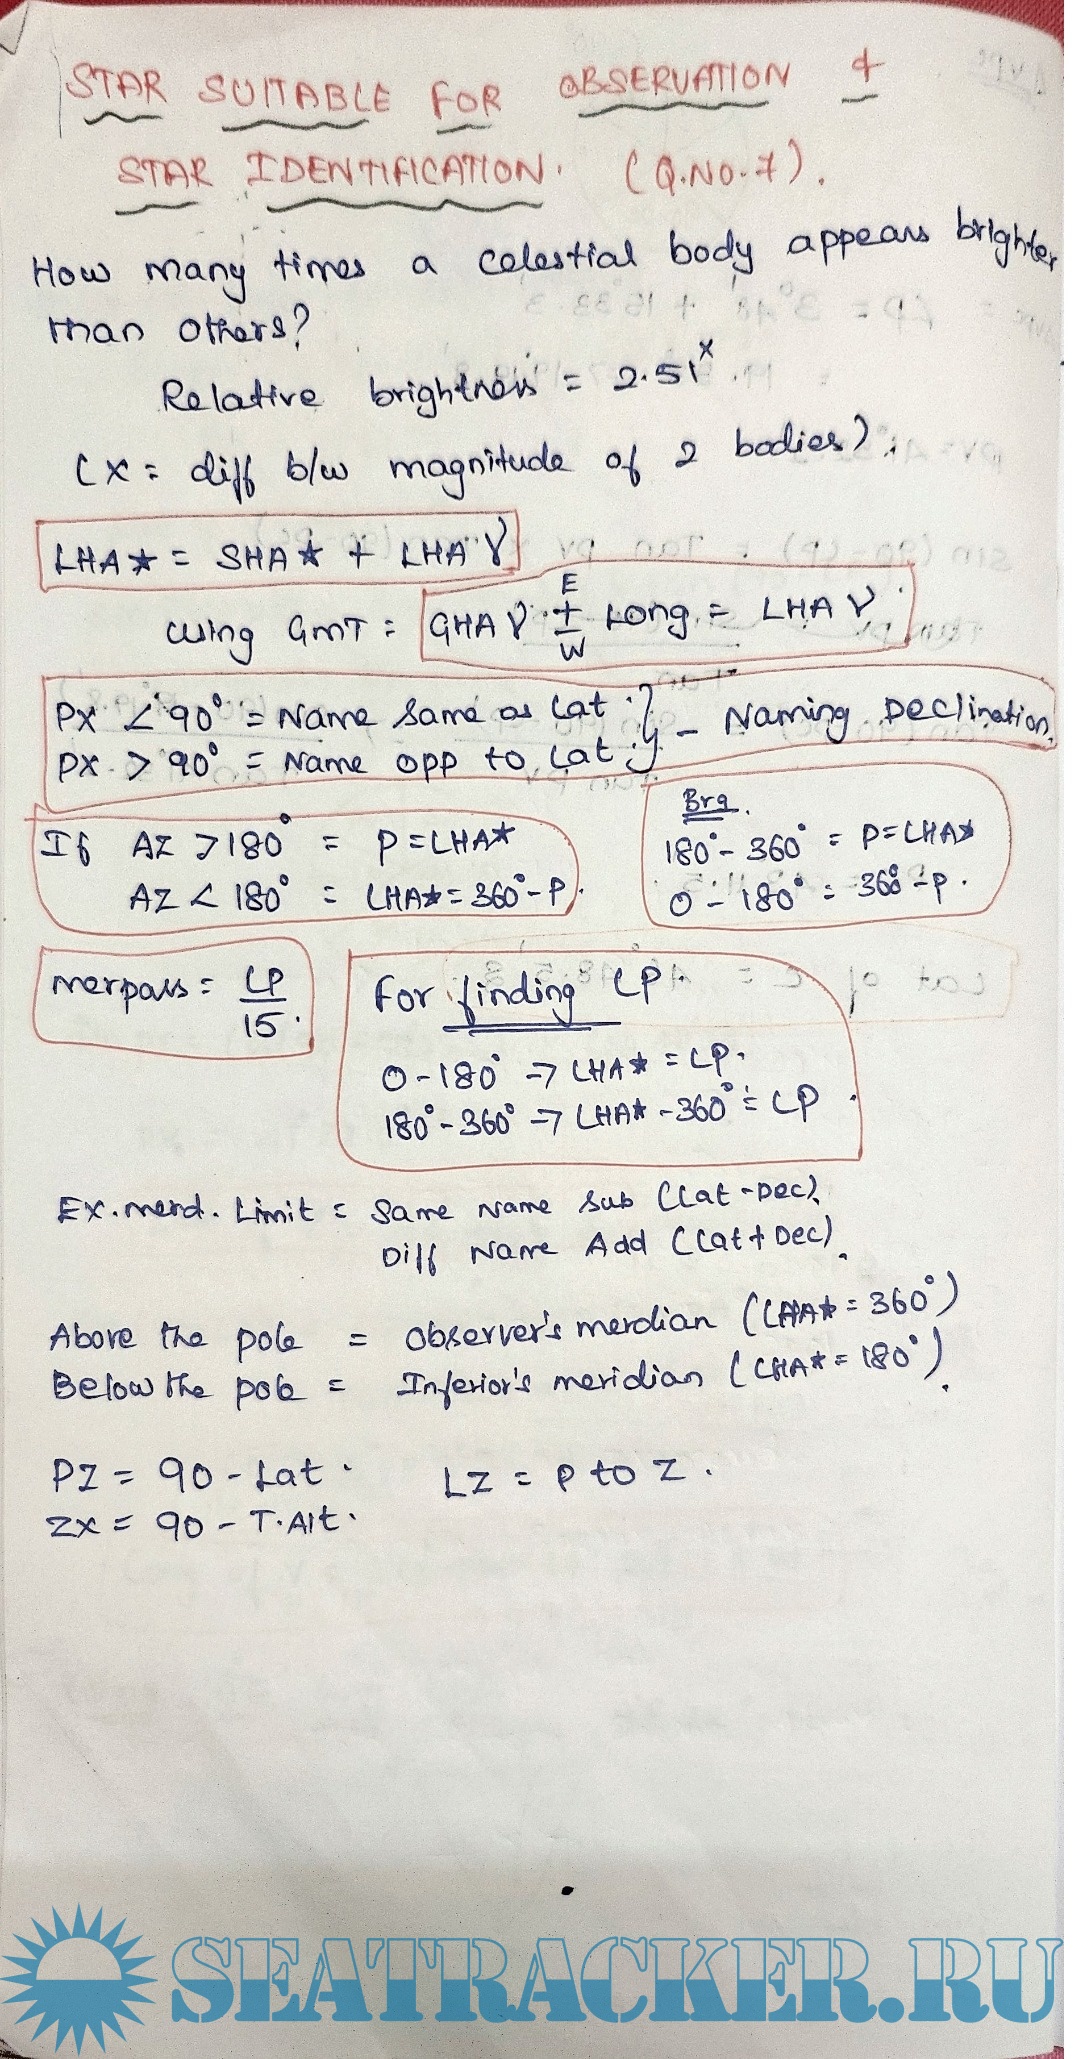 STAR SUITABLE FOR OBSERVATION &
STAR IDENTIFICATION. (Q.NO.7).
How many times a celestial body appears brighter
than others?
Relative brightness = 2.51ˣ
(x = diff b/w magnitude of 2 bodies).
LHA★ = SHA★ + LHA ♈
Using GMT = GHA ♈ E±W Long = LHA ♈
PX < 90° = Name same as Lat } - Naming Declination.
PX > 90° = Name opp to Lat }
If AZ > 180° = P = LHA★
AZ < 180° = LHA★ = 360° - P.
Brg.
180° - 360° = P = LHA★
0 - 180° = 360° - P.
merpass = LP/15.
For finding LP
0 - 180° → LHA★ = LP.
180° - 360° → LHA★ - 360° = LP.
Ex. merd. Limit = Same Name Sub (Lat - Dec).
Diff Name Add (Lat + Dec).
Above the pole = Observer's merdian (LHA★ = 360°)
Below the pole = Inferior's meridian (LHA★ = 180°).
PZ = 90 - Lat. LZ = P to Z.
ZX = 90 - T.Alt.
SEATRACKER.RU